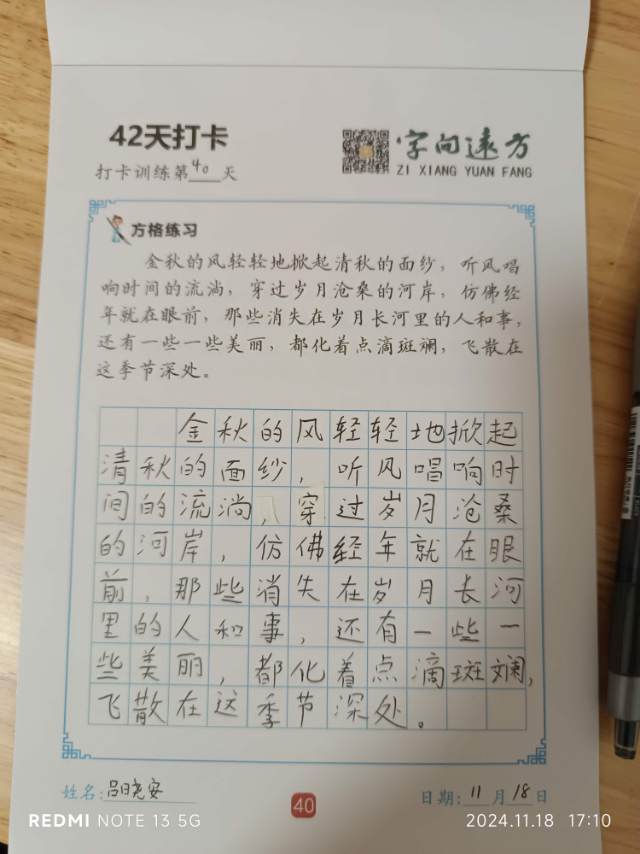 42天打卡
打卡训练第40天
字向远方
ZI XIANG YUAN FANG
方格练习
金秋的风轻轻地掀起清秋的面纱，听风唱
响时间的流淌，穿过岁月沧桑的河岸，仿佛经
年就在眼前，那些消失在岁月长河里的人和事，
还有一些一些美丽，都化着点滴斑斓，飞散在
这季节深处。
金秋的风轻轻地掀起
清秋的面纱，听风唱响时
间的流淌，穿过岁月沧桑
的河岸，仿佛经年就在眼
前，那些消失在岁月长河
里的人和事，还有一些一
些美丽，都化着点滴斑斓，
飞散在这季节深处。
姓名:吕晓安
40
日期:11月18日
REDMI NOTE 13 5G
2024.11.18 17:10